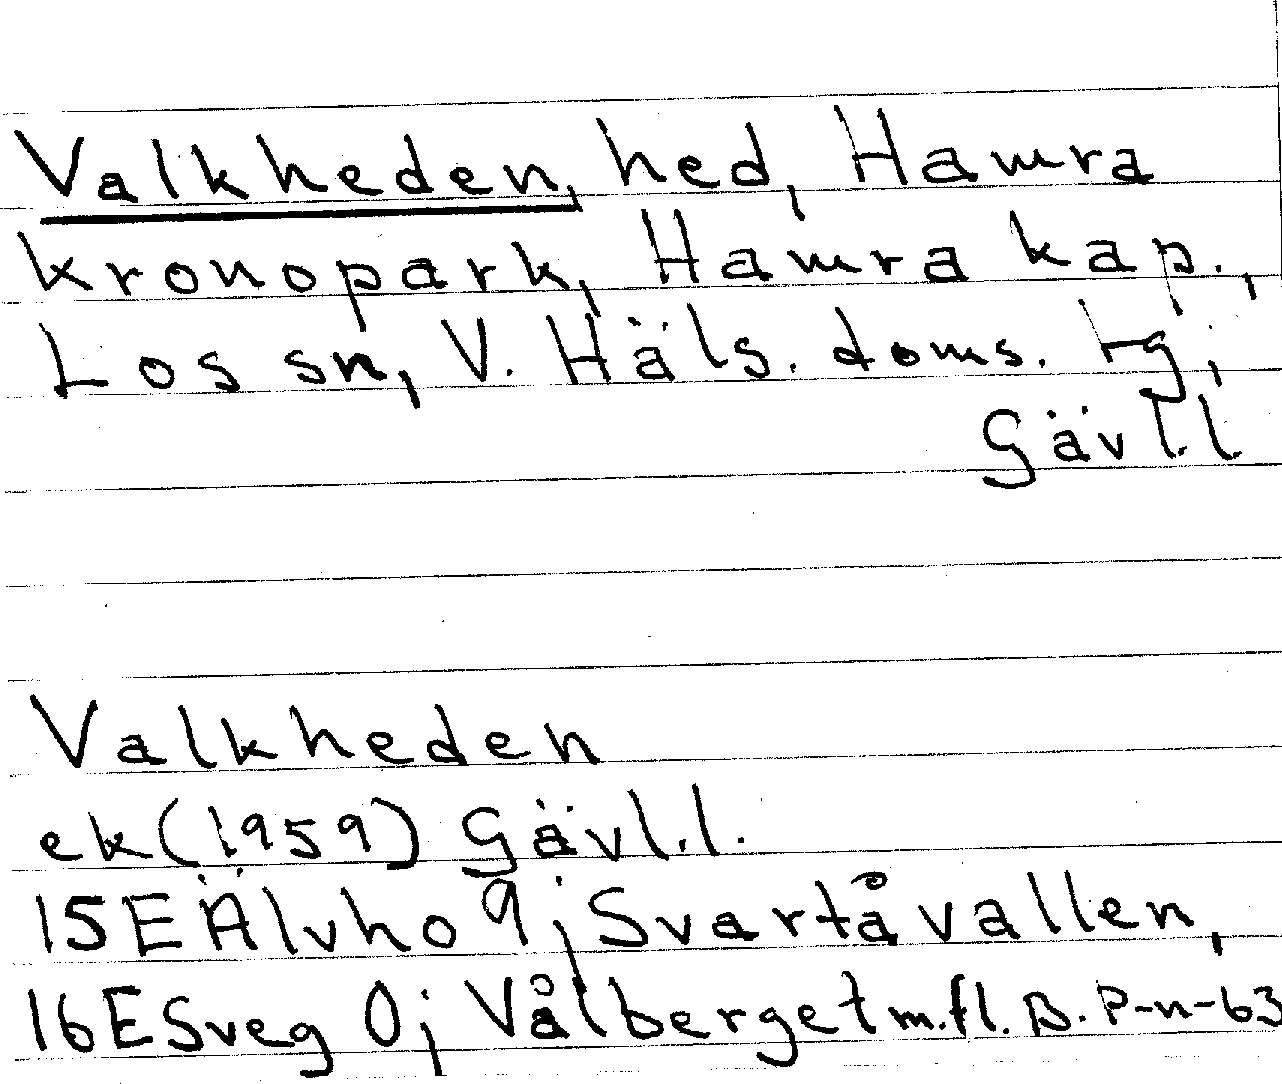 Valkheden, hed, Hamra
kronopark, Hamra kap.,
Los sn, V. Häls. doms. tg,
Gävl.l
Valkheden
ek (1959) Gävl.l.
15E Älvho 9; Svartåvallen,
16E Sveg 0; Vålberget m.fl. B. P-n-63